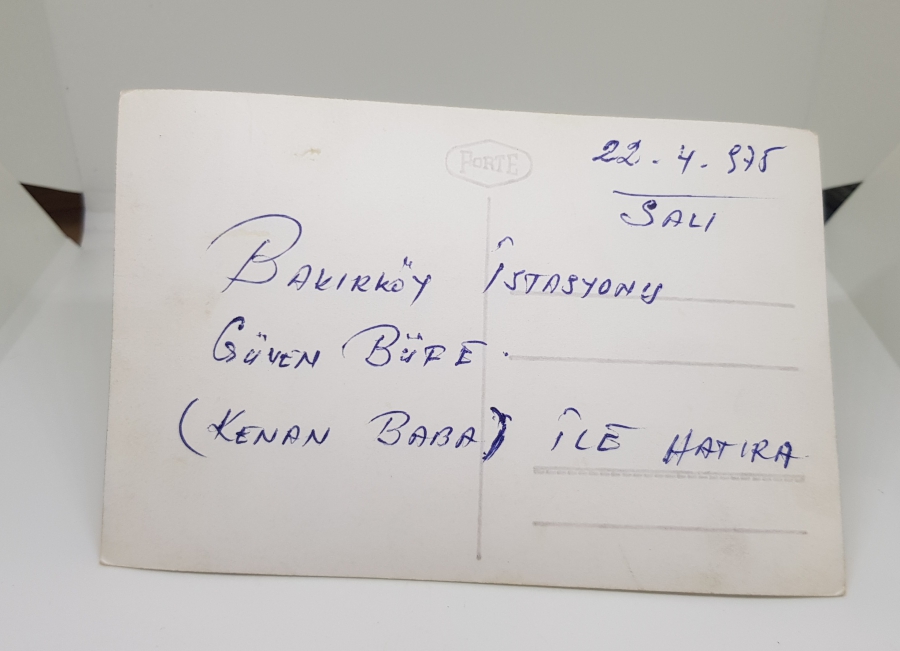 PORTE
22 - 4 - 975
SALI
BAKIRKÖY İSTASYONU
GÜVEN BÜFE.
(KENAN BABA) İLE HATIRA